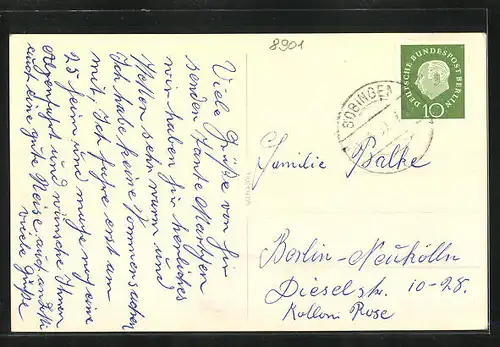 8901
DEUTSCHE BUNDESPOST BERLIN
10
BOBINGEN
Viele Grüße von hir
senden Tante Martchen
wir haben hir herliches
Wetter sehr warm und
Ich habe keine Sommersachen
mit, Ich fahre erst am
25 heim und muß noch eine
und wünsche Ihnen
auch eine gute Reise
viele Grüße
Familie Balke
Berlin-Neukölln
Dieselstr. 10-28.
Kolloni Rose